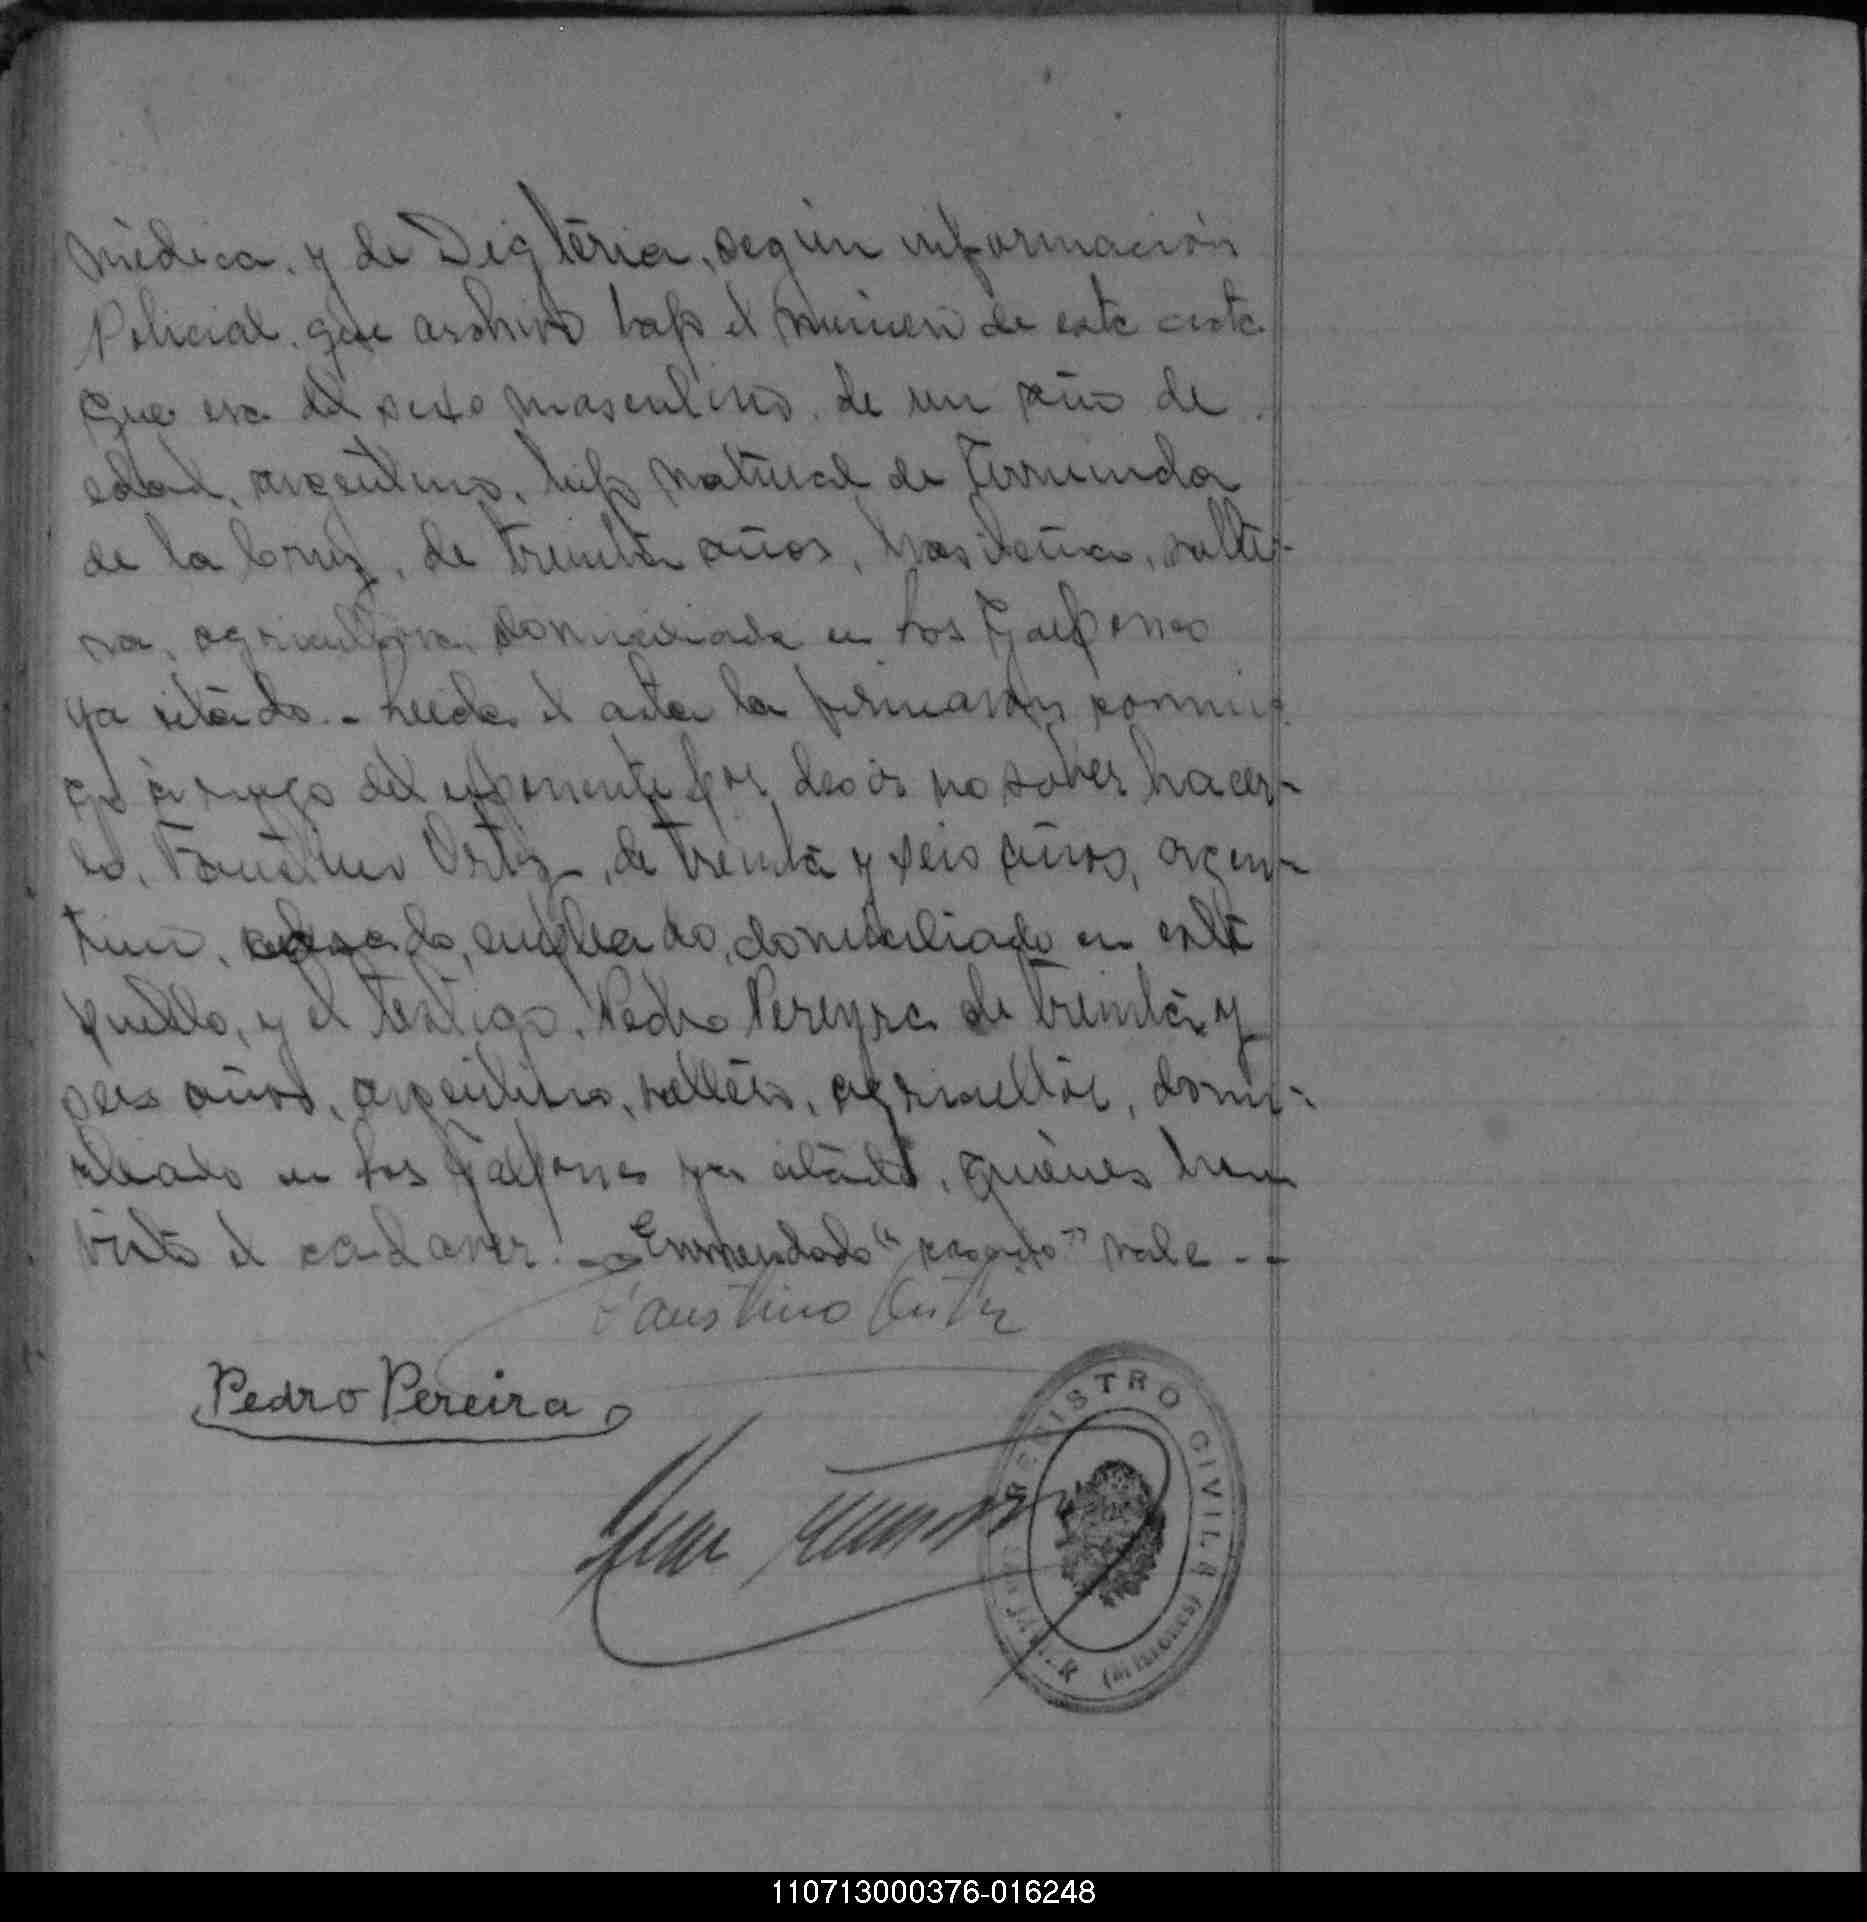 médica. y de Digtéria, según información
Policial. que archivo bajo el número de este acta
que era del sexo masculino. de un año de
edad, argentino, hijo natural de
de la Cruz, de treinta años, brasileña, solte-
ra, agricultora domiciliada en Los Galpones
ya citado.- Leida el acta la firmaron conmi-
go à ruego del exponente por decir no saber hacer-
lo, Faustino Ortiz, de treinta y seis años, argen-
tino, casado, empleado, domiciliado en este
pueblo, y el testigo, Pedro Pereyra de treinta y
seis años, argentino, soltero, agricultor, domi-
ciliado en Los Galpones ya citado, quienes han
visto el cadaver.- Enmendado "casado" vale - -
Faustino Ortiz
Pedro Pereira
REGISTRO CIVIL
(MISIONES)
110713000376-016248